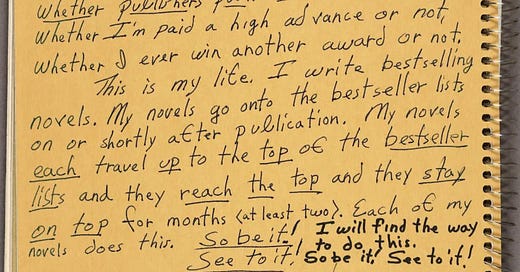 whether publishers
whether I'm paid a high advance or not,
whether I ever win another award or not.
This is my life. I write bestselling
novels. My novels go onto the bestseller lists
on or shortly after publication. My novels
each travel up to the top of the bestseller
lists and they reach the top and they stay
on top for months (at least two). Each of my
novels does this. So be it! I will find the way
See to it! to do this.
So be it! See to it!